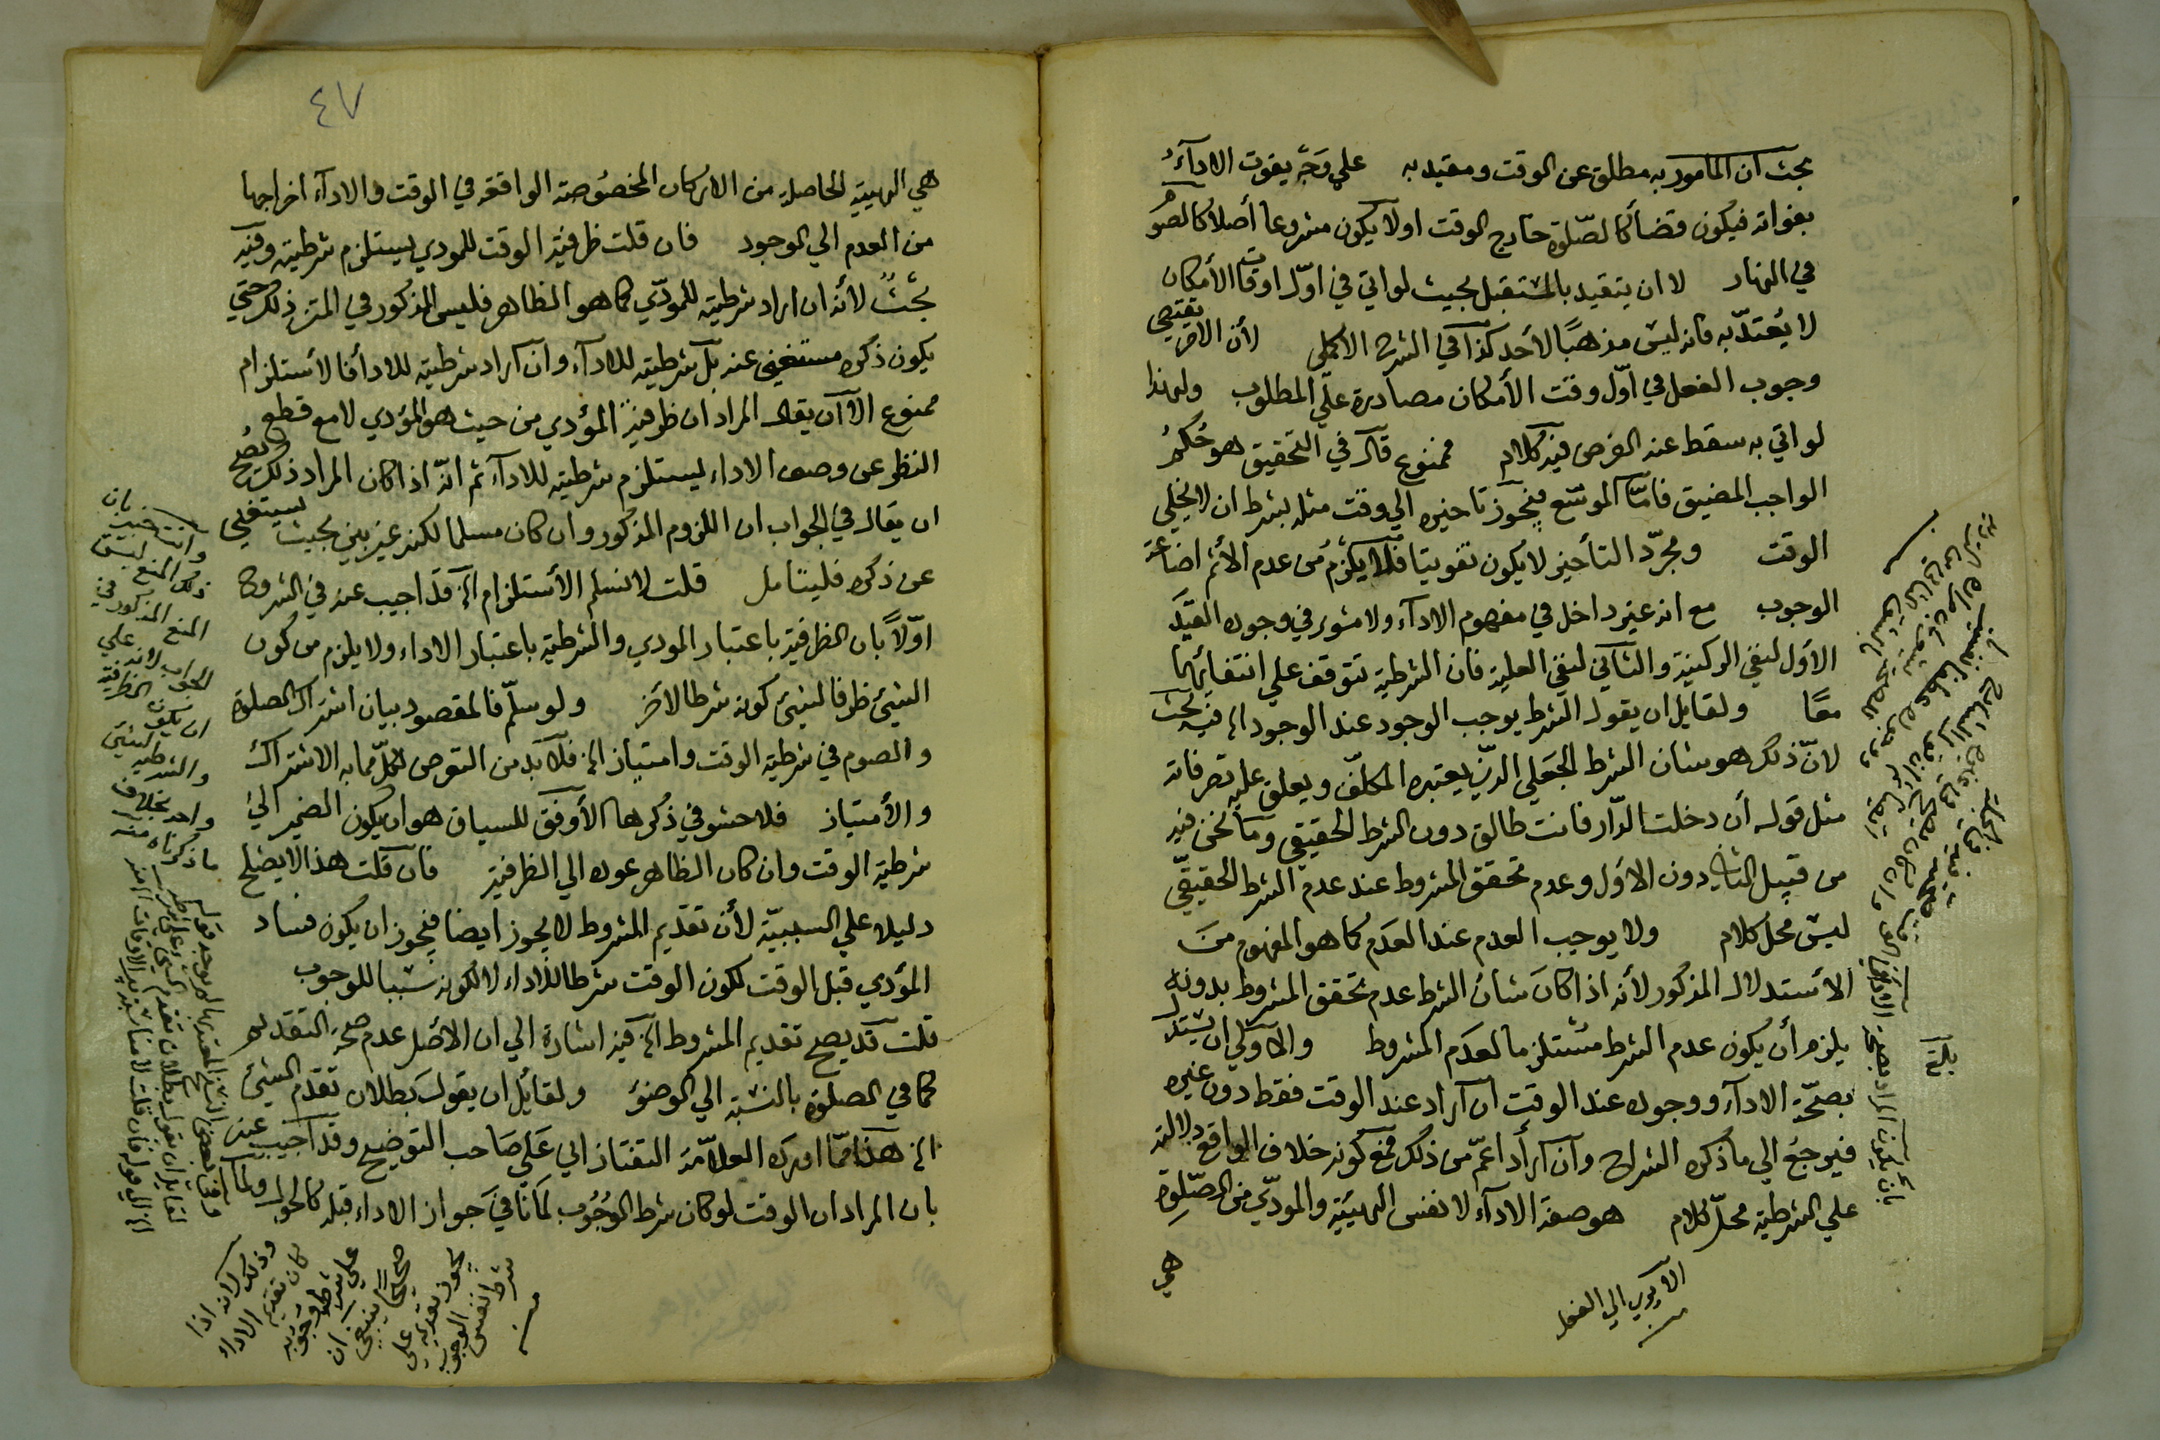 بحث ان المأمور به مطلق عن الوقت ومقيد به على وجه يفوت الاداء
بفواته فيكون قضاء كالصلوة خارج الوقت اولا يكون مشروعا أصلا كالصوم
في النهار لا ان يتقيد بالمستقبل بحيث لو اتي في اوّل اوقات الأمكان
لا يُعتدّ به فانه ليس مذهبًا لأحد كذا في الشرح الاكملي لأن الامر يقتضي
وجوب الفعل في اوّل وقت الأمكان مصادرة على المطلوب ولهذا
لو اتي به سقط عنه الفرض فيه كلام ممنوع قال في التحقيق هو حُكمُ
الواجب المضيق فامّا الموسّع فيجوز تاخيره الي وقت مثله بشرط ان لا يخلي
الوقت ومجرّد التأخير لا يكون تفويتا فلا يلزم من عدم الأثم اضاعة
الوجوب مع انه غير داخل في مفهوم الاداء ولا مؤثر في وجوده القيد
الأول لنفي الركنية والثاني لنفي العلية فان الشرطية تتوقف علي انتفائهما
معًا ولقايل ان يقول الشرط يوجب الوجود عند الوجود الخ فيه بحث
لانّ ذلك هو شان الشرط الجَعلي الذي يعتبره المكلّف ويعلق عليه تصرفاته
مثل قوله أن دخلت الدّار فانت طالق دون الشرط الحقيقي وما نحن فيه
من قبيل الثاني دون الاوّل وعدم تحقق المشروط عند عدم الشرط الحقيقّي
ليس محل كلام ولا يوجب العدم عند العدَم كما هو المفهوم من
الأستدلال المذكور لأنه اذا كان شان الشرط عدم تحقق المشروط بدونه
يلزم أن يكون عدم الشرط مستلزما لعدم المشروط والاولي ان يستدل
بصحّة الاداء ووجوده عند الوقت ان اراد عند الوقت فقط دون غيره
فيرجعُ الي ما ذكره الشراح وان أراد أعمّ من ذلك فمع كونه خلاف الواقع دلالته
علي الشرطية محلّ كلام هو صفة الاداء لا نفس الهيئية والمودّي من الصّلوة
هي
الا يودي الي الفعل
منه
بلغ
٤٧
هي الهيئة الحاصلة من الاركان المخصُوصة الواقعة في الوقت والاداء اخراجها
من العدم الي الوجود فان قلت ظرفية الوقت للمودي يستلزم شرطيته وفيه
بحثٌ لأنه ان اراد شرطيته للمودّي كما هو الظاهر فليس المذكور في المتن ذلك حتي
يكون ذكره مستغني عنه بل شرطيته للاداء وان اراد شرطيته للاداء فالاستلزام
ممنوع الا ان يقال المراد ان ظرفية المؤدي من حيث هو المؤدي لا مع قطع
النظر عن وصف الاداء يستلزم شرطيته للاداء ثم انّه اذا كان المراد ذلك يصُح
ان يقال في الجواب ان اللزوم المذكور وان كان مسلما لكنه غير بين بحيث يستغني
عن ذكره فليتامل قلت لا نسلم الأستلزام الخ قد اجيب عنه في الشروح
اوّلاً بان الظرفية باعتبار المودي والشرطية باعتبار الاداء ولا يلزم من كون
الشيئ ظرفا لشيئ كونه شرطا لاخر ولو سلّم فالمقصود بيان اشتراك الصلوة
والصوم في شرطية الوقت وامتياز الخ فلا بد من التعرض لكلّ مما به الاشتراك
والأمتياز فلا حشو في ذكرها الأوفق للسياق هو ان يكون الضمير الي
شرطية الوقت وان كان الظاهر عوده الي الظرفية فان قلت هذا لا يصلح
دليلا علي السببيّة لأن تقديم المشروط لا يجوز ايضا فيجوز ان يكون فساد
المؤدي قبل الوقت لكون الوقت شرطا للاداء لا لكونه سببا للوجوب
قلت قد يصح تقديم المشروط الخ فيه اشارة الي ان الاصل عدم صحة التقديم
كما في الصلوة بالنسبة الي الوضوء ولقائل ان يقول بطلان تقدم الشيئ
الخ هذا ممّا اورده العلامة التفتازاني علي صاحب التوضيح وقد اجيب عنه
بان المراد ان الوقت لو كان شرط الوجُوب لما نافي جواز الاداء قبله كالحول ولما
وانت خبير بان
ذلك المنع ليس
المنع المذكور في
الجواب لانه علي
ان يكون الظرفية
والشرطية لشيئ
واحد بخلاف
ما ذكرناه منه
وذلك لانه اذا
كان تقديم الاداء
علي شرط وجوبه
صحيحًا ينبغي ان
يجوز تقديمه علي
شرط نفس الوجوب
منه